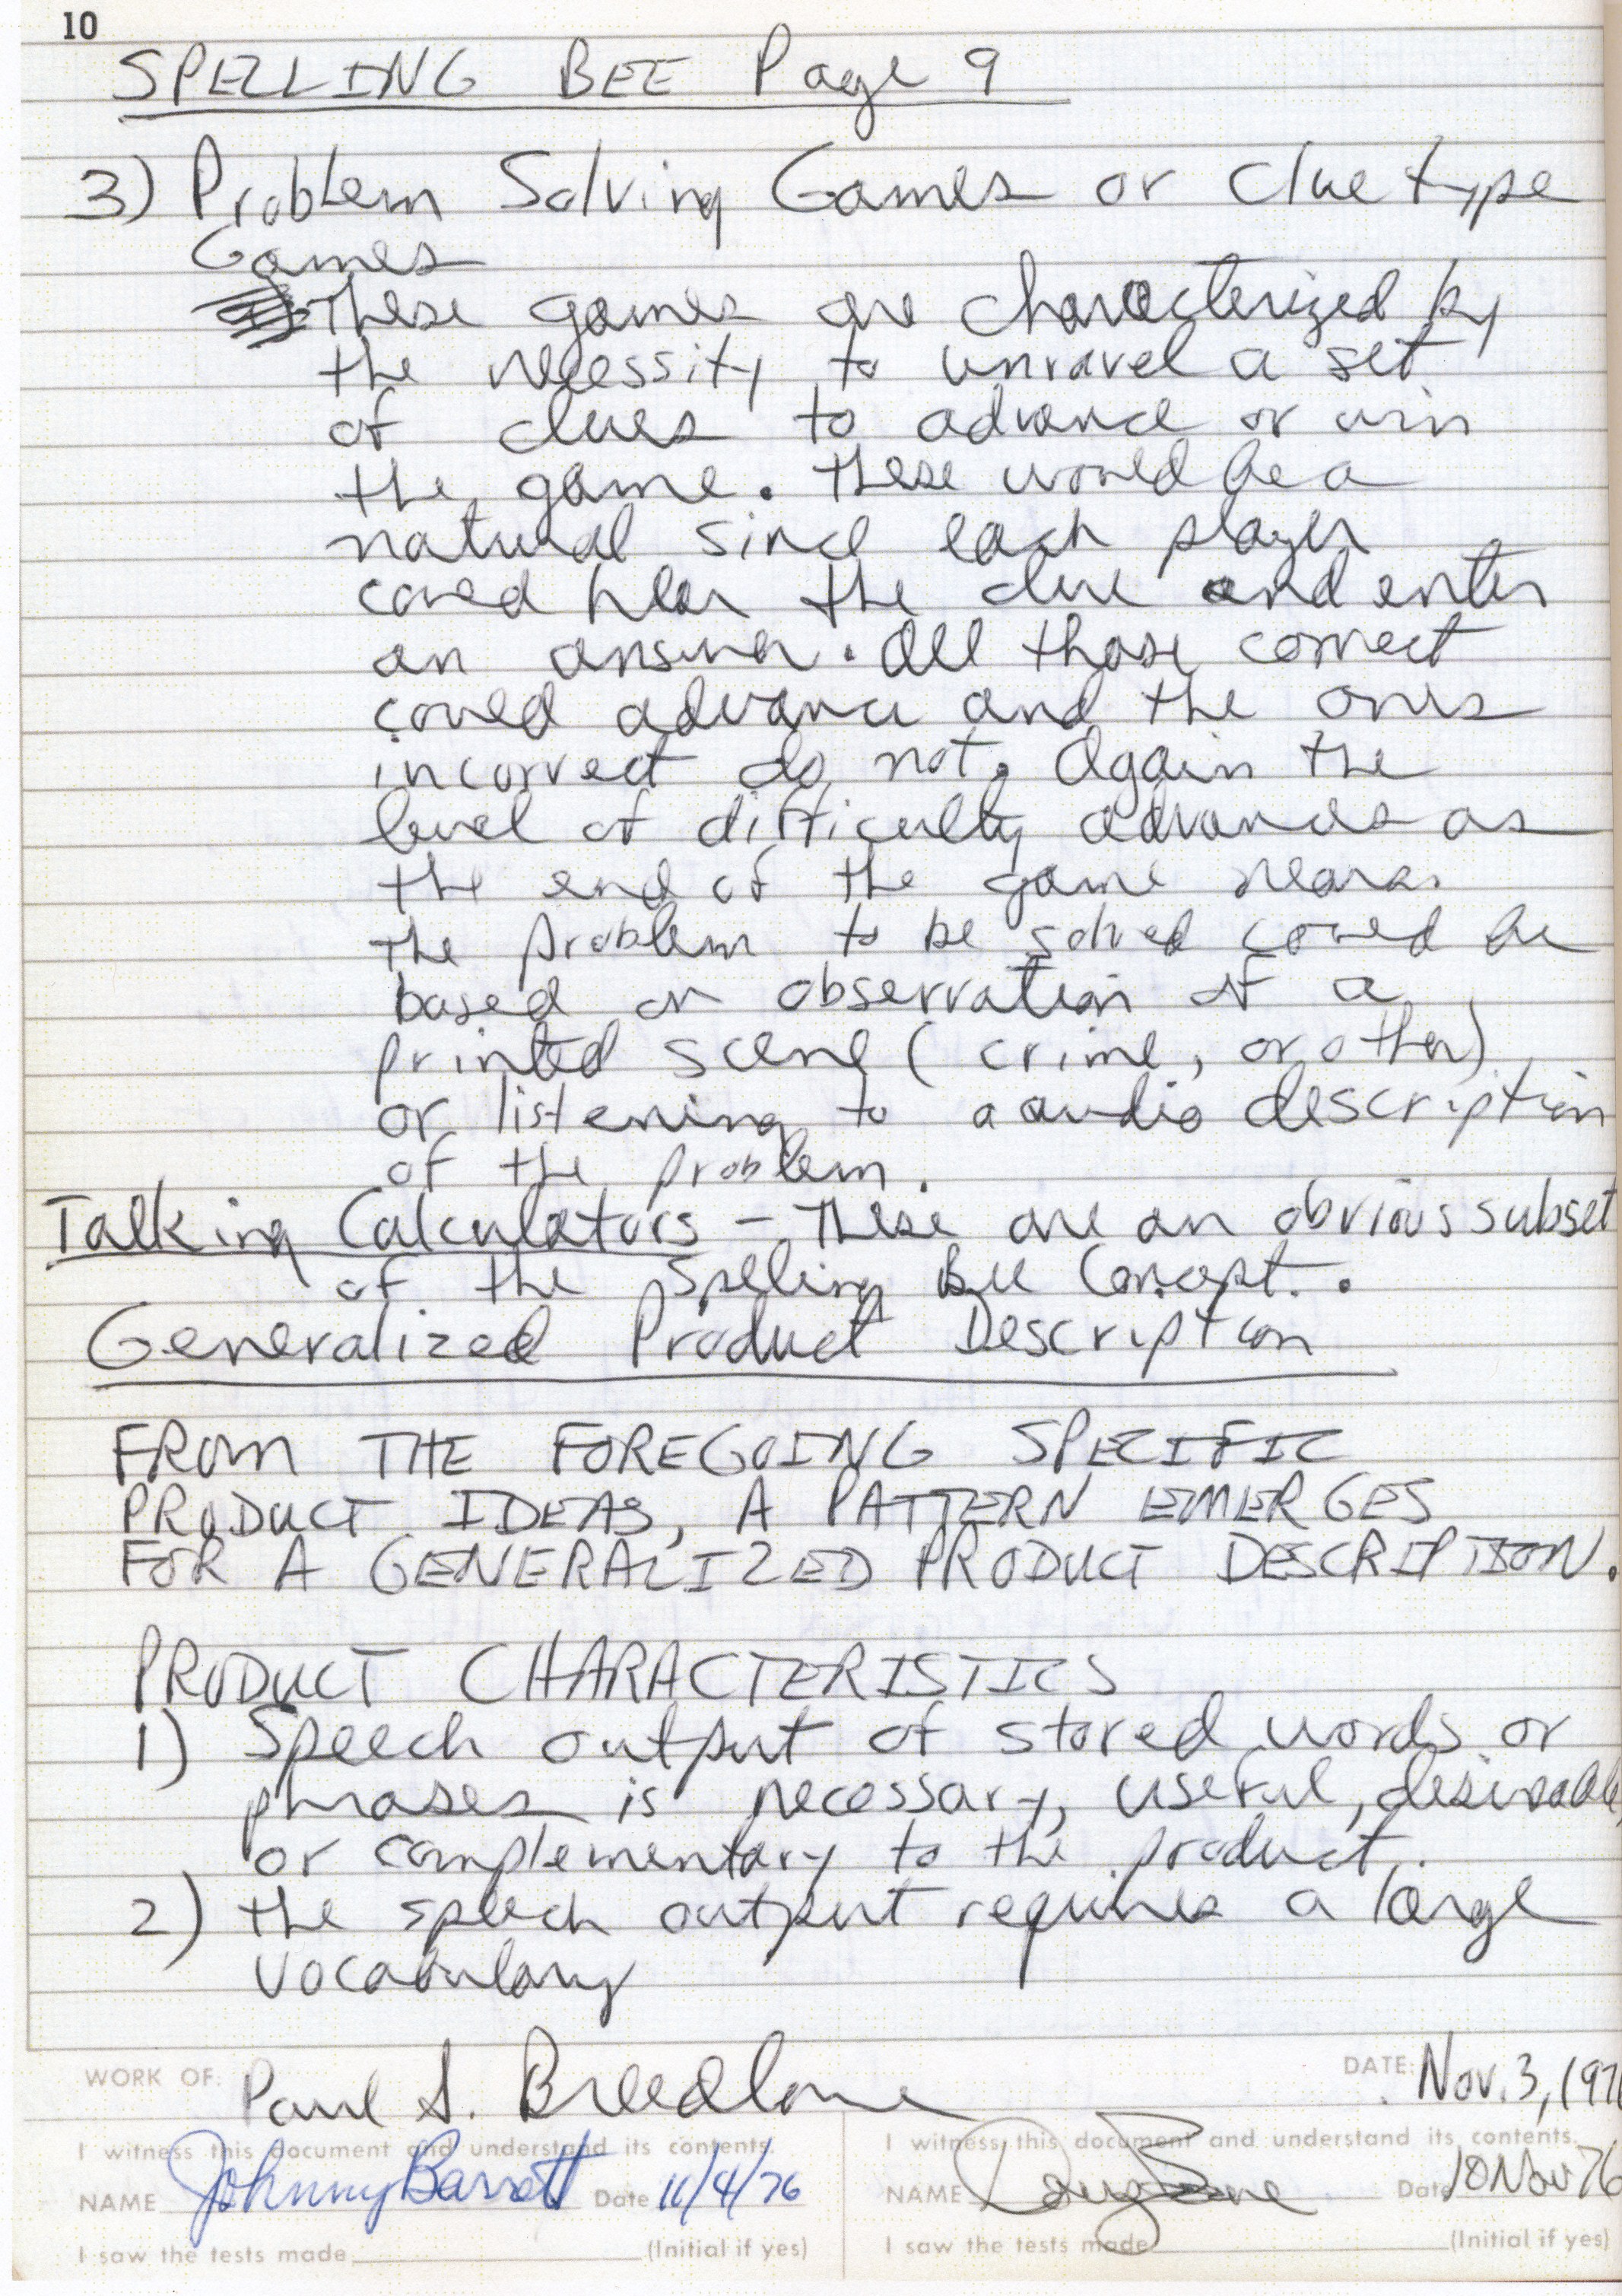 10
SPELLING BEE Page 9
3) Problem Solving Games or clue type
Games
These games are characterized by
the necessity to unravel a set
of clues to advance or win
the game. These would be a
natural since each player
could hear the clue and enter
an answer. All those correct
could advance and the ones
incorrect do not. Again the
level of difficulty advances as
the end of the game nears.
The problem to be solved could be
based on observation of a
printed scene (crime, or other)
or listening to a audio description
of the problem.
Talking Calculators - These are an obvious subset
of the Spelling Bee Concept.
Generalized Product Description
FROM THE FOREGOING SPECIFIC
PRODUCT IDEAS, A PATTERN EMERGES
FOR A GENERALIZED PRODUCT DESCRIPTION.
PRODUCT CHARACTERISTICS
1) Speech output of stored words or
phrases is necessary, useful, desireable,
or complementary to the product.
2) the speech output requires a large
vocabulary
WORK OF: Paul S. Breedlove DATE: Nov. 3, 1976
I witness this document and understand its contents. I witness this document and understand its contents.
NAME Johnny Barrett Date 11/4/76 NAME Date 10 Nov 76
I saw the tests made (Initial if yes) I saw the tests made (Initial if yes)